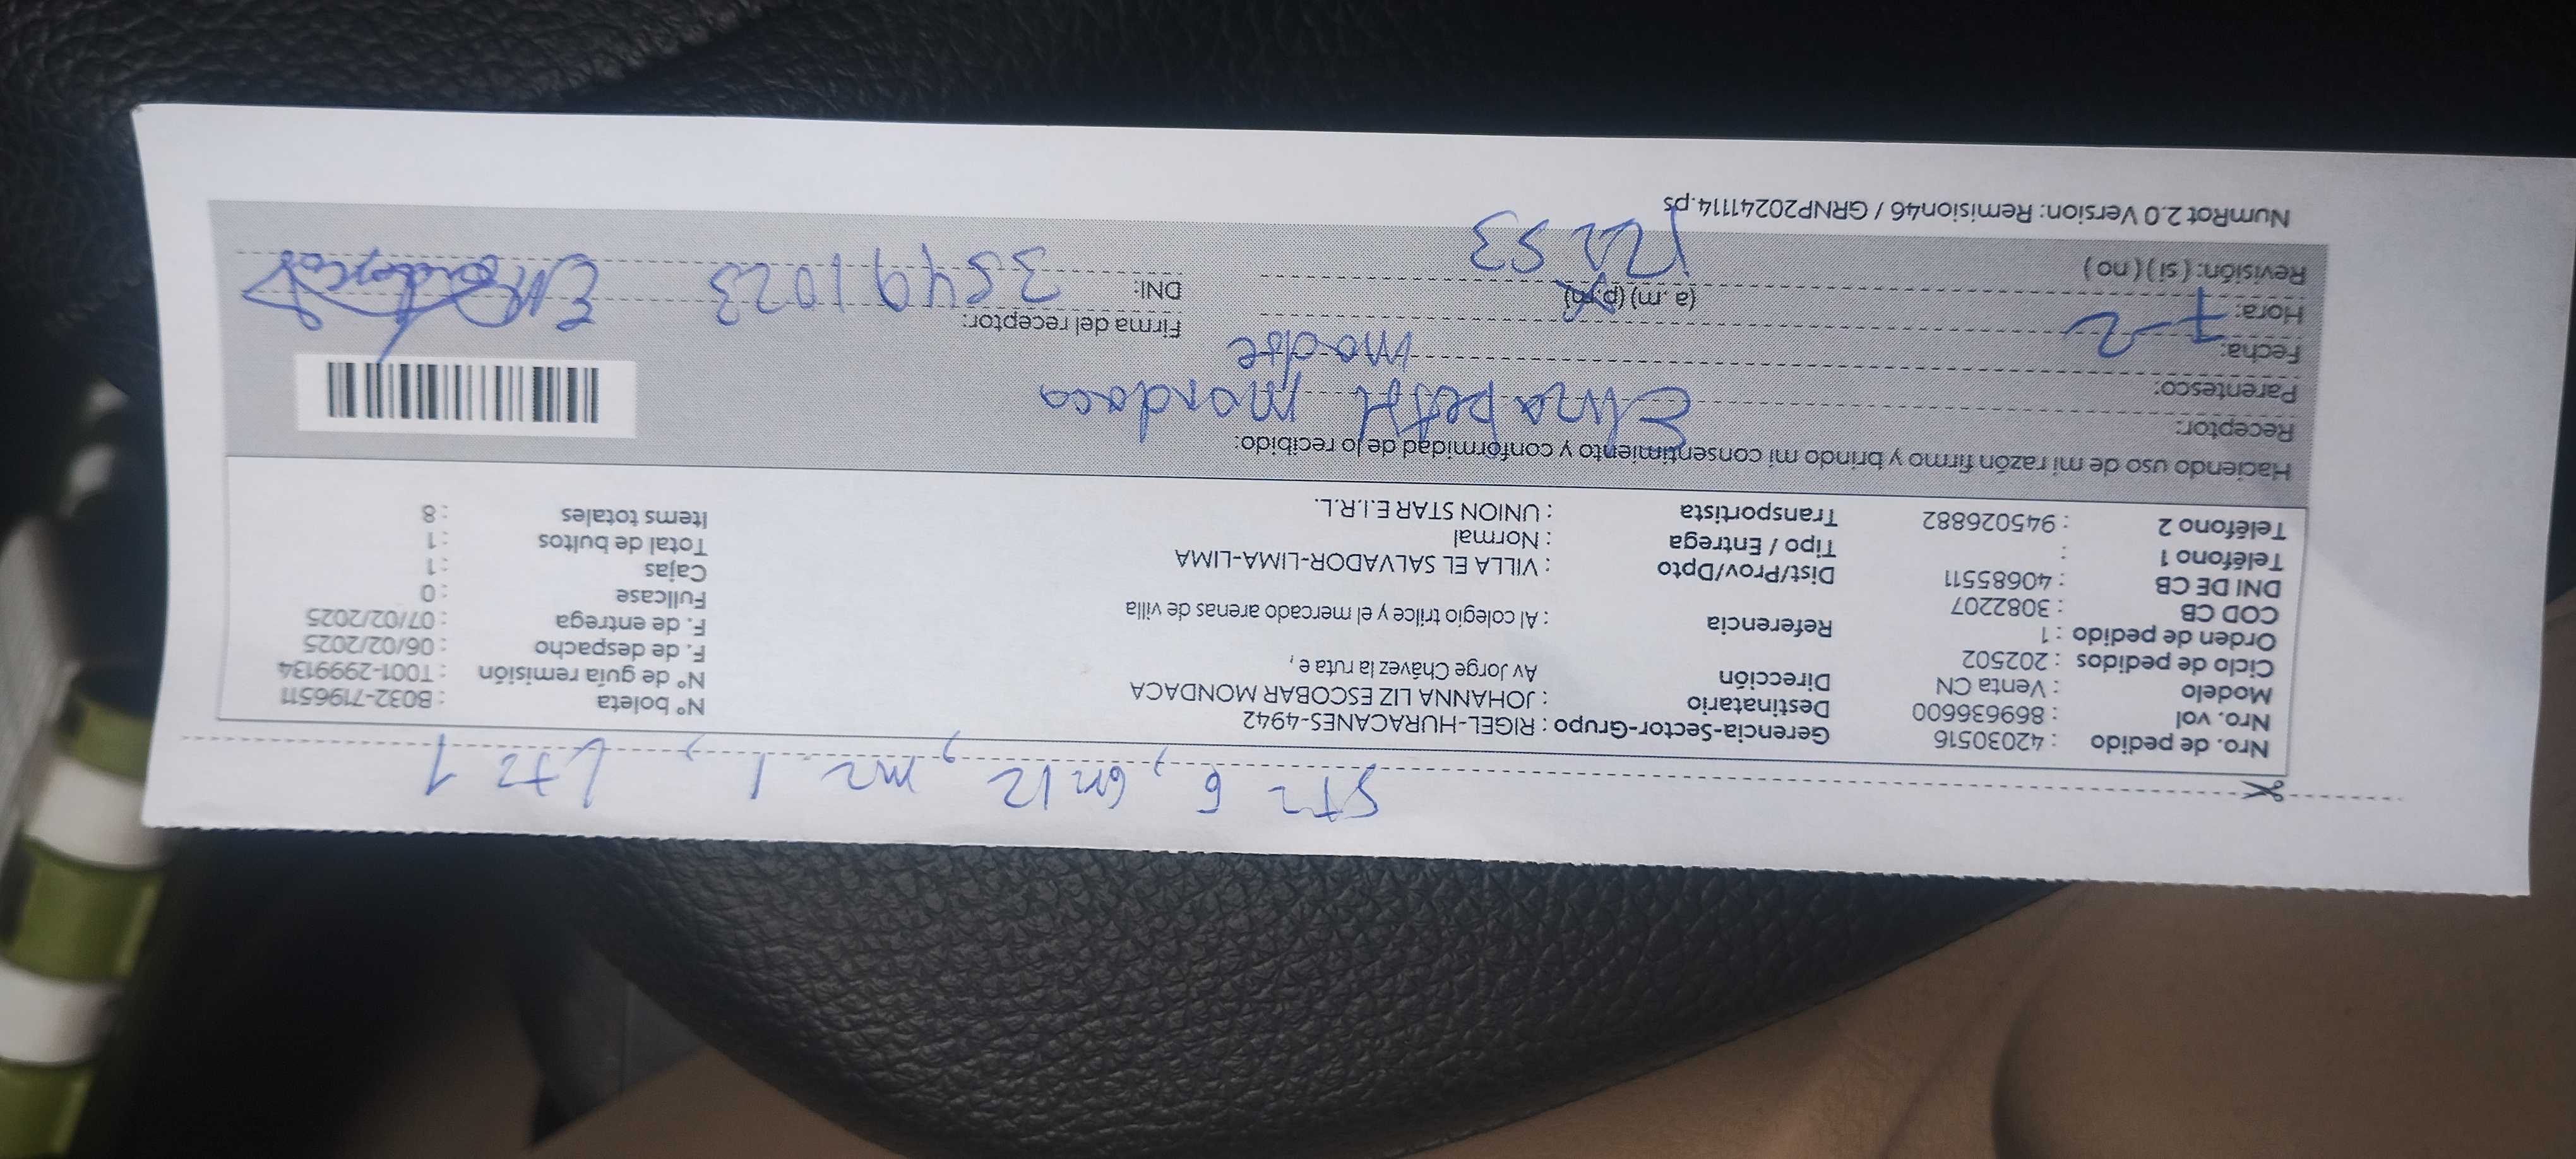 St 6, Gr 12, mz 1, Lt 1
Nro. de pedido : 42030516 Gerencia-Sector-Grupo : RIGEL-HURACANES-4942 N° boleta : B032-7196511
Nro. vol : 869636600 Destinatario : JOHANNA LIZ ESCOBAR MONDACA N° de guía remisión : T001-2999134
Modelo : Venta CN Dirección Av Jorge Chávez la ruta e, F. de despacho : 06/02/2025
Ciclo de pedidos : 202502 F. de entrega : 07/02/2025
Orden de pedido : 1 Referencia : Al colegio trilce y el mercado arenas de villa Fullcase : 0
COD CB : 3082207 Cajas : 1
DNI DE CB : 40685511 Dist/Prov/Dpto : VILLA EL SALVADOR-LIMA-LIMA Total de bultos : 1
Teléfono 1 : Tipo / Entrega : Normal Items totales : 8
Teléfono 2 : 945026882 Transportista : UNION STAR E.I.R.L.
Haciendo uso de mi razón firmo y brindo mi consentimiento y conformidad de lo recibido:
Receptor: Elizabeth mondaca
Parentesco: madre
Fecha: 7-2 Firma del receptor:
Hora: (a. m) (p.m) 12 53 DNI: 35491023
Revisión: ( si ) ( no )
NumRot 2.0 Version: Remision46 / GRNP20241114.ps